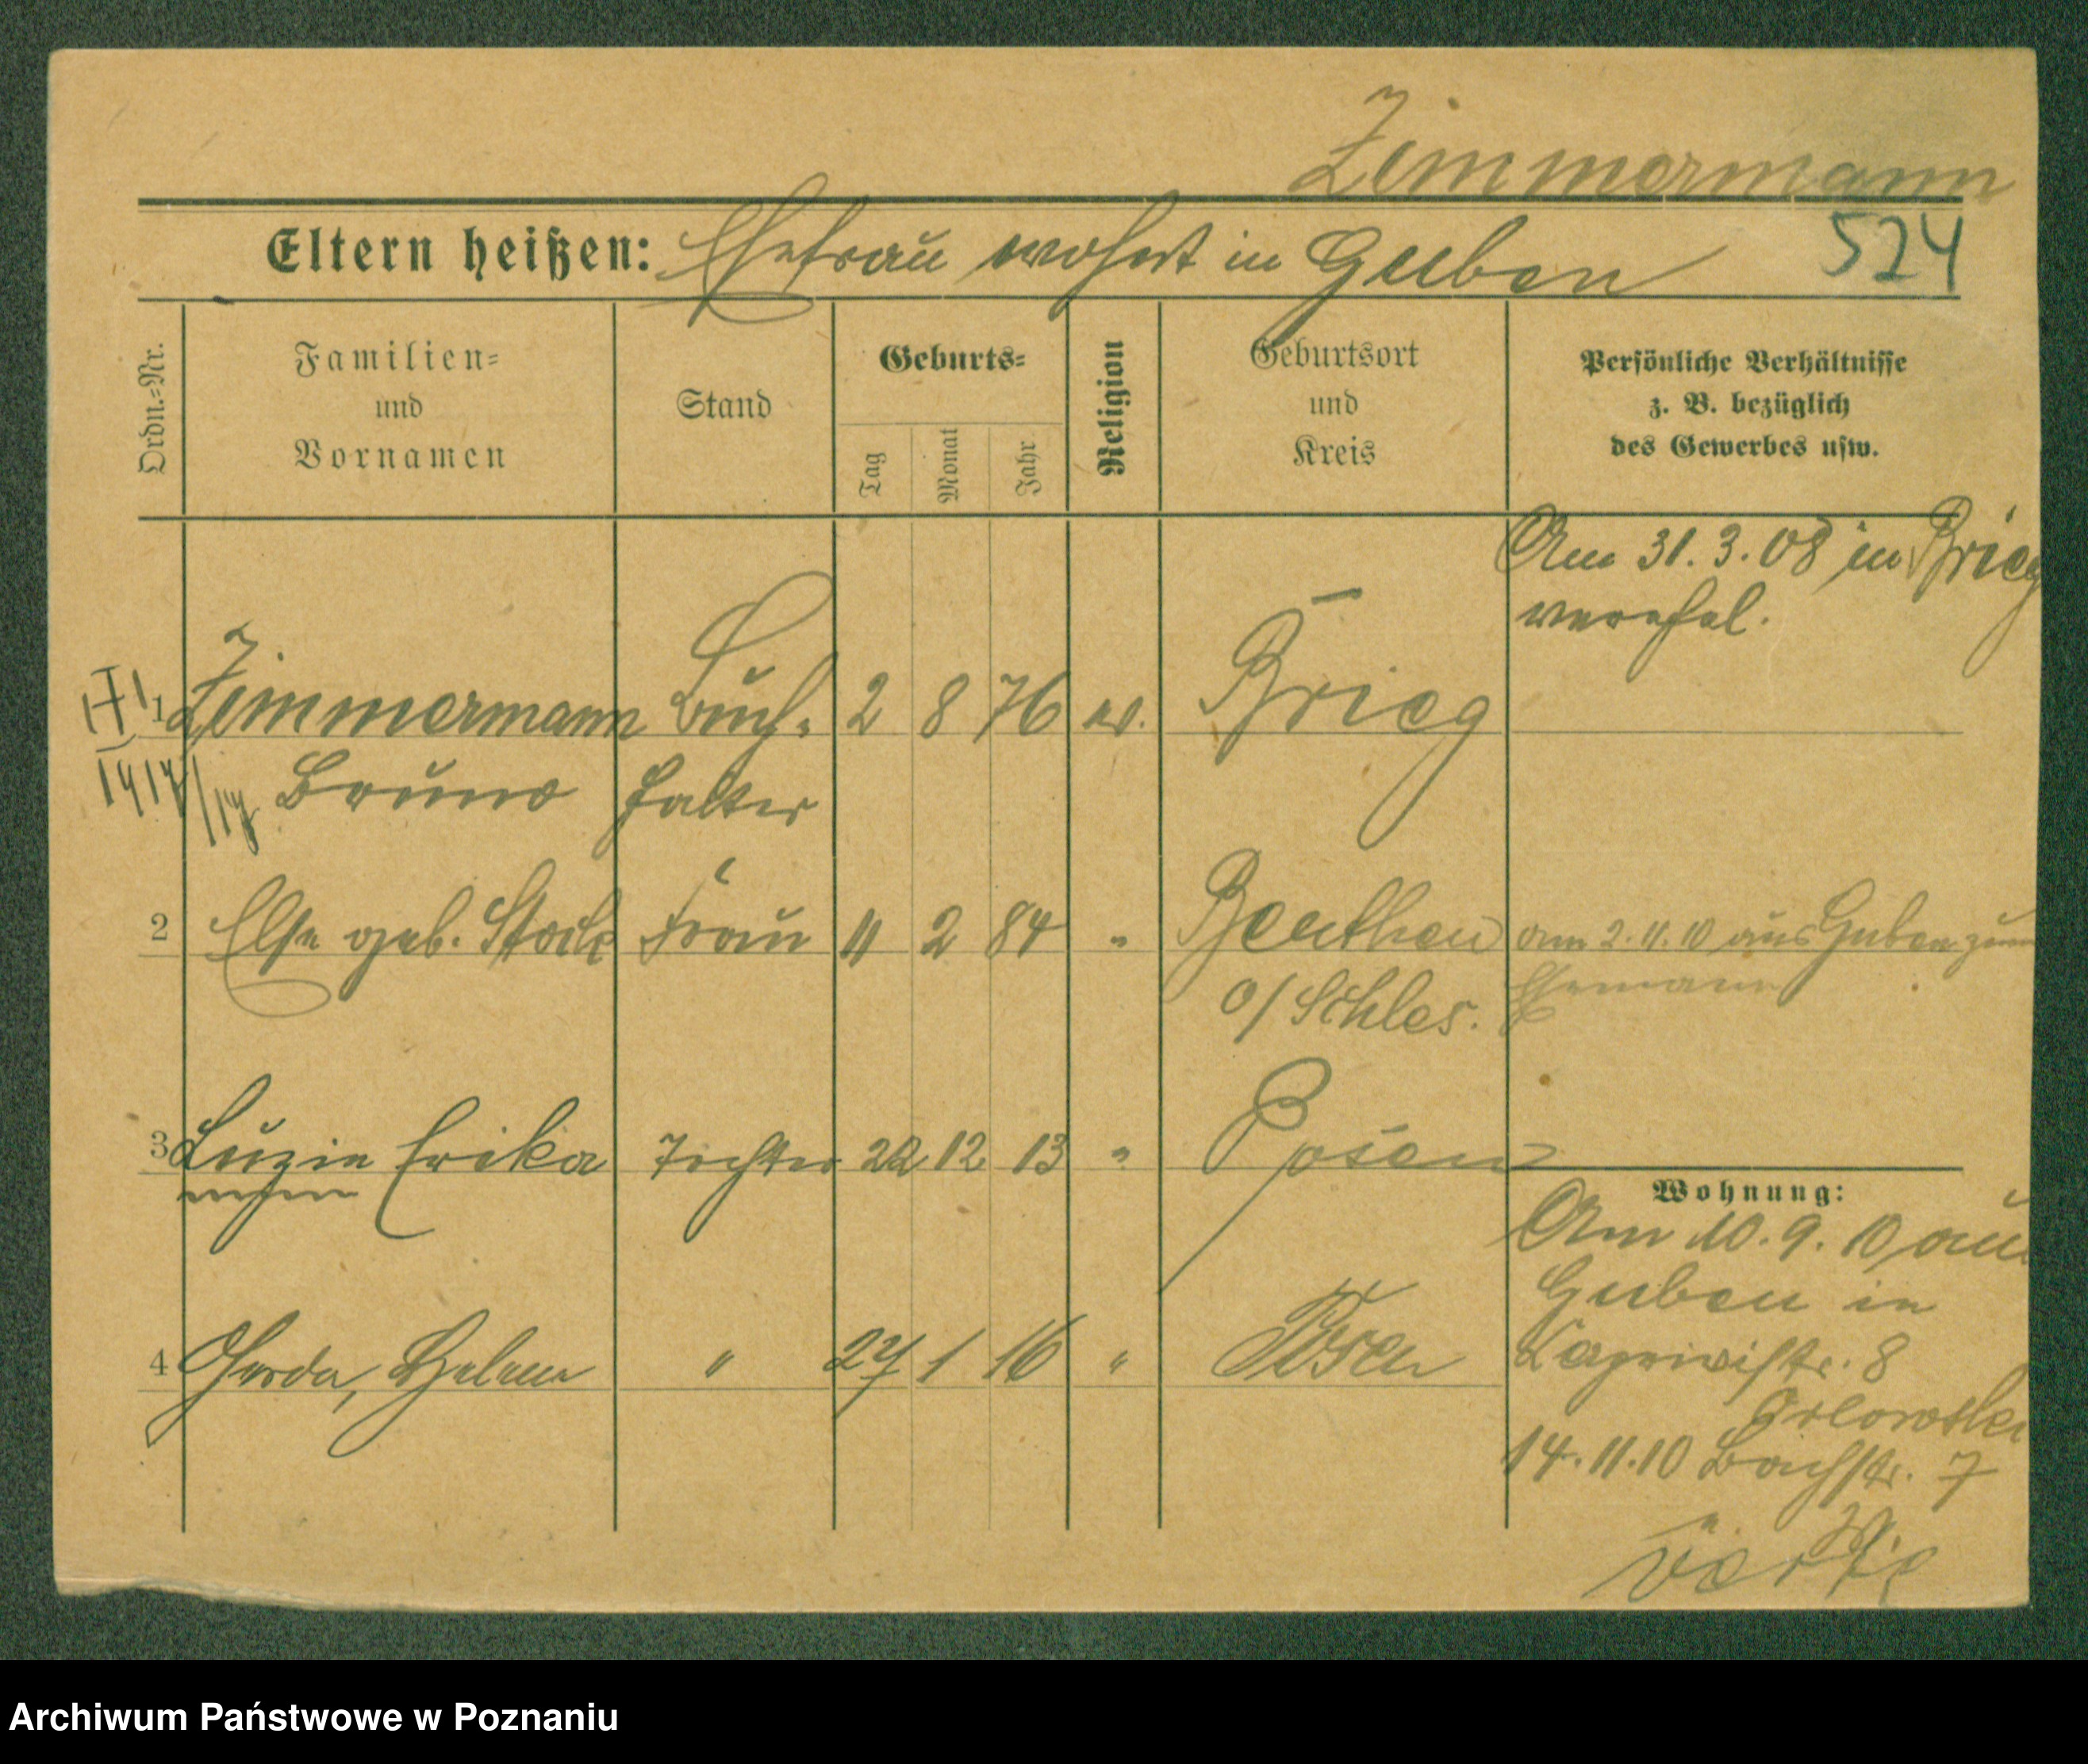 Zimmermann
Eltern heißen: Ehefrau wohnt in Guben 524
Ordn.=Nr.
Familien=
und
Vornamen
Stand
Geburts=
Tag
Monat
Jahr
Religion
Geburtsort
und
Kreis
Persönliche Verhältnisse
z. B. bezüglich
des Gewerbes usw.
Am 31.3.08 in Brieg
verehel.
1 Zimmermann Buch= 2 8 76 ev. Brieg
Bruno halter
2 Else geb. Stock Frau 11 2 84 " Beuthen am 2.11.10 aus Guben zum
O/Schles. Ehemann
3 Luzie Erika Tochter 22 12 13 " Posen
Wohnung:
Am 10.9.10 aus
Guben in
Caprivistr. 8
4 Gerda, Helene " 27 1 16 " Posen
14.11.10 Bachstr. 7
Archiwum Państwowe w Poznaniu